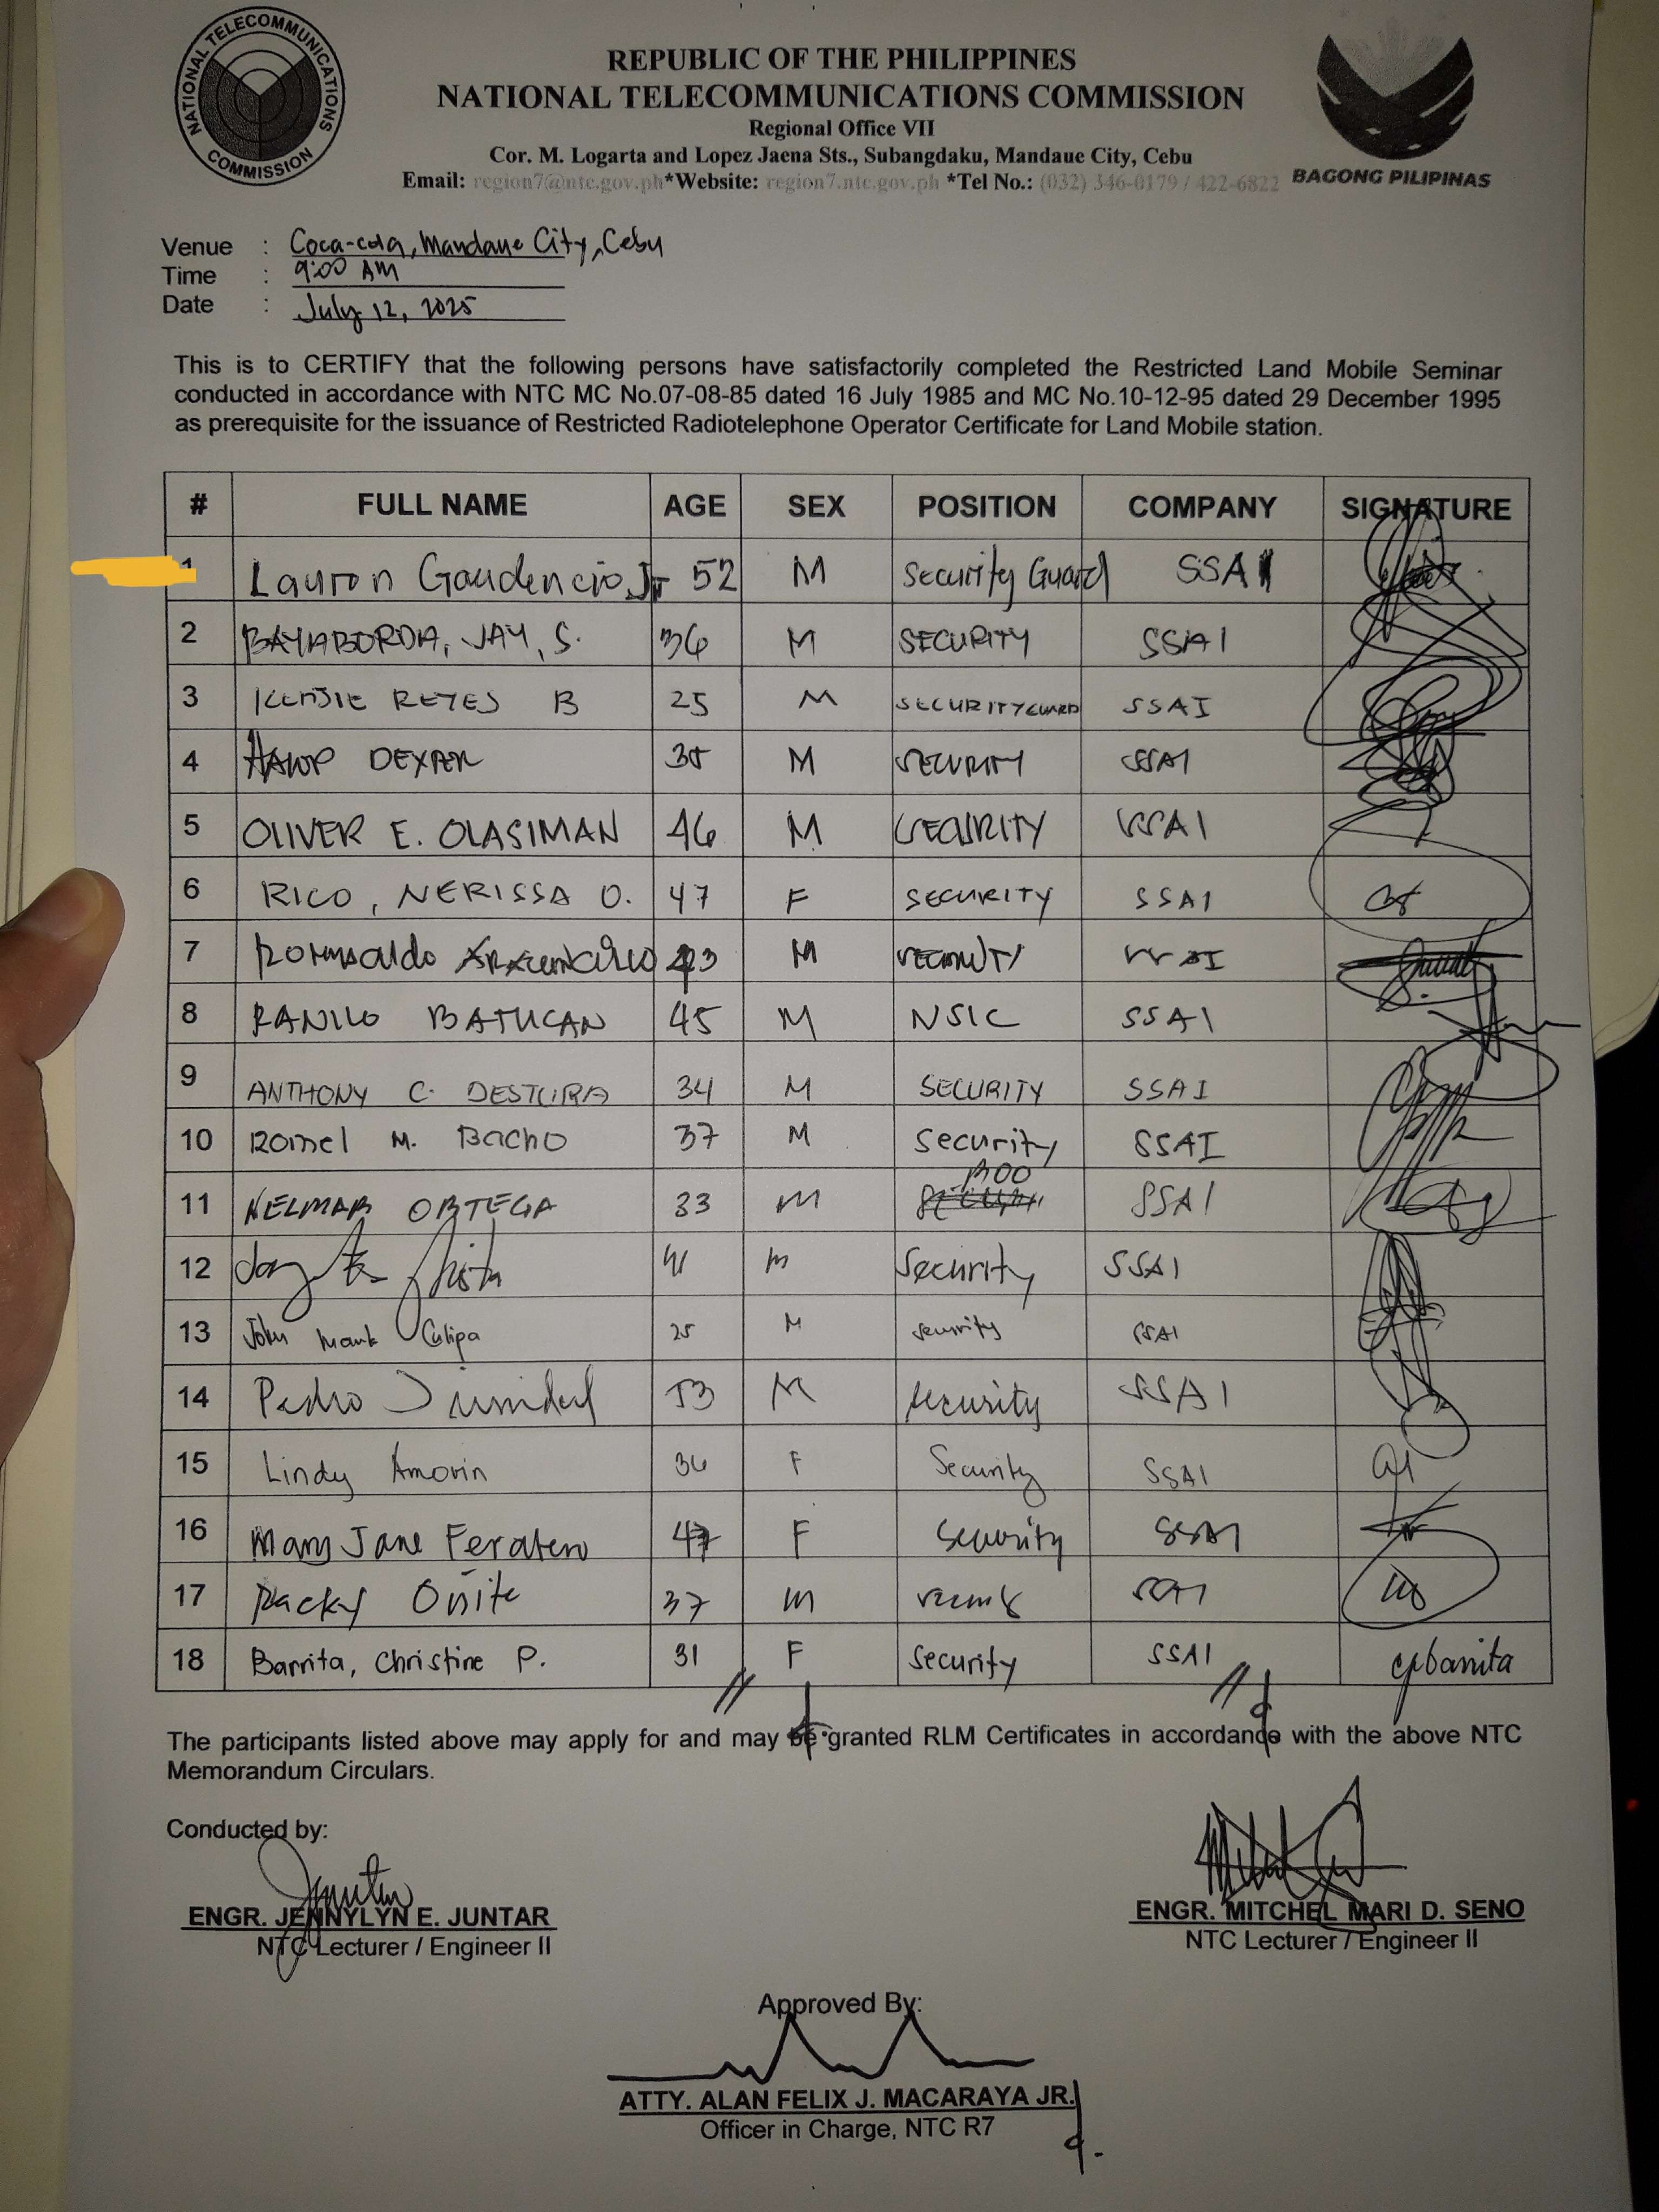 NATIONAL TELECOMMUNICATIONS COMMISSION
REPUBLIC OF THE PHILIPPINES
NATIONAL TELECOMMUNICATIONS COMMISSION
Regional Office VII
Cor. M. Logarta and Lopez Jaena Sts., Subangdaku, Mandaue City, Cebu
Email: region7@ntc.gov.ph*Website: region7.ntc.gov.ph *Tel No.: (032) 346-0179 / 422-6822
BAGONG PILIPINAS
Venue : Coca-cola, Mandaue City, Cebu
Time : 9:00 AM
Date : July 12, 2025
This is to CERTIFY that the following persons have satisfactorily completed the Restricted Land Mobile Seminar
conducted in accordance with NTC MC No.07-08-85 dated 16 July 1985 and MC No.10-12-95 dated 29 December 1995
as prerequisite for the issuance of Restricted Radiotelephone Operator Certificate for Land Mobile station.
# FULL NAME AGE SEX POSITION COMPANY SIGNATURE
1 Lauron Gaudencio Jr 52 M Security Guard SSAI
2 BAYABORDA, JAY, S. 36 M SECURITY SSAI
3 KENJIE REYES B 25 M SECURITY GUARD SSAI
4 DEXTER M SECURITY SSAI
5 OLIVER E. OLASIMAN 46 M SECURITY SSAI
6 RICO, NERISSA O. 47 F SECURITY SSAI
7 Romualdo 43 M SECURITY SSAI
8 RANILO BATUCAN 45 M NSIC SSAI
9 ANTHONY C. DESTURA 34 M SECURITY SSAI
10 Romel M. Bacho 37 M Security SSAI
11 NELMAR ORTEGA 33 M SSAI
12 41 M Security SSAI
13 John Mark Culipa 25 M Security SSAI
14 Pedro 53 M Security SSAI
15 Lindy Amorin 36 F Security SSAI
16 Mary Jane 47 F Security SSAI
17 Packy Oñite 37 M SSAI
18 Barrita, Christine P. 31 F Security SSAI cpbarrita
The participants listed above may apply for and may be granted RLM Certificates in accordance with the above NTC
Memorandum Circulars.
Conducted by:
ENGR. JENNYLYN E. JUNTAR
NTC Lecturer / Engineer II
ENGR. MITCHEL MARI D. SENO
NTC Lecturer / Engineer II
Approved By:
ATTY. ALAN FELIX J. MACARAYA JR.
Officer in Charge, NTC R7